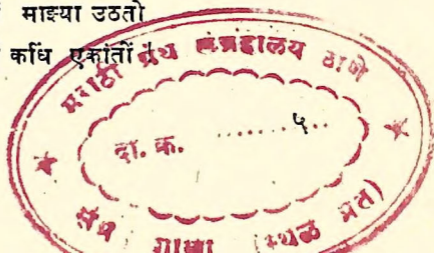 माझ्या उठतो
कधि एकांतीं
मराठी ग्रंथ संग्रहालय ठाणे
दा. क. ........५..
(स्थळ प्रत)